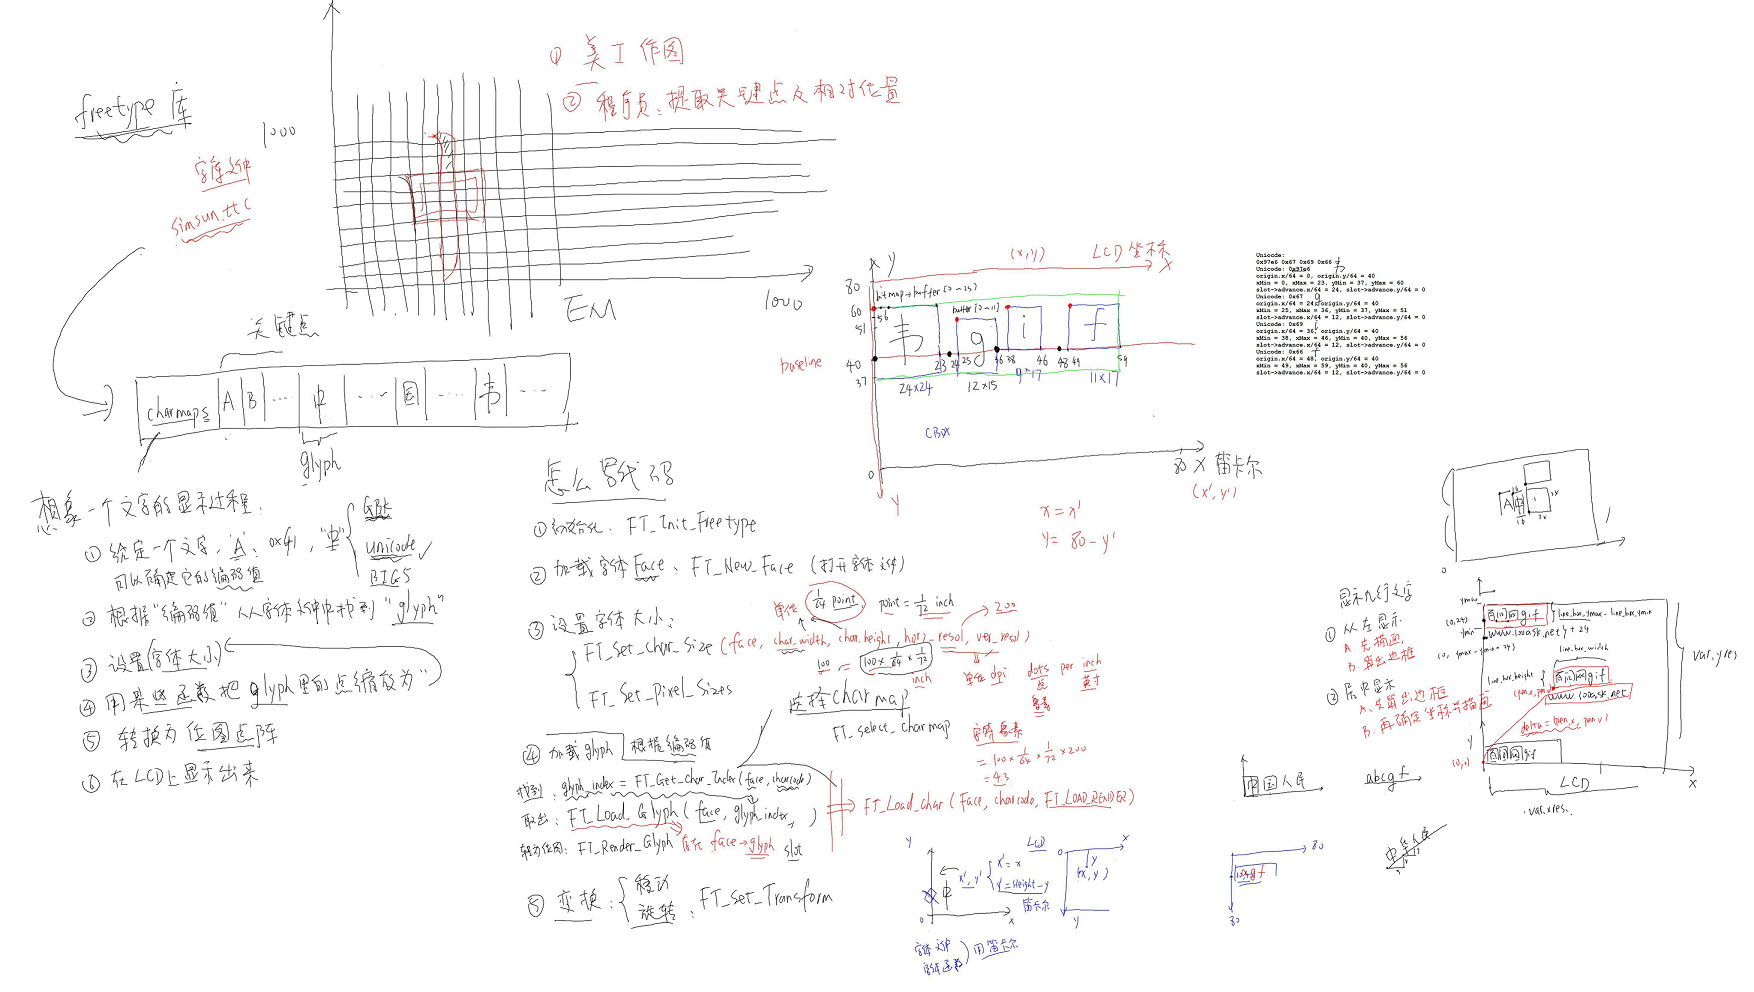 freetype 库
字库文件
simsun.ttc
1000
① 美工作图
② 程序员：提取关键点及相对位置
EM
1000
关键点
charmaps A B ... 中 ... 国 ... 韦 ...
glyph
想象一个文字的显示过程：
① 给定一个文字，'A'、0x41，"中"
GBK
unicode
BIG5
可以确定它的编码值
② 根据"编码值"从字体文件中找到"glyph"
③ 设置字体大小
④ 用某些函数把glyph里的点缩放为"
⑤ 转换为位图点阵
⑥ 在LCD上显示出来
怎么写代码
① 初始化：FT_Init_Freetype
② 加载字体Face：FT_New_Face（打开字体文件）
③ 设置字体大小：
单位 1/64 point, point = 1/72 inch
200
FT_Set_Char_Size (face, char_width, char_height, horz_resol, ver_resol)
100 = 100×1/64×1/72
inch
单位 dpi dots per inch
点 英寸
像素
FT_Set_Pixel_Sizes
选择charmap
FT_select_charmap
字符像素
= 100×1/64×1/72×200
= 43
④ 加载glyph 根据编码值
找到：glyph_index = FT_Get_Char_Index (face, charcode)
取出：FT_Load_Glyph (face, glyph_index, )
转为位图：FT_Render_Glyph 存在 face→glyph slot
FT_Load_Char (Face, charcode, FT_LOAD_RENDER)
⑤ 变换：
移动
旋转：FT_Set_Transform
(x,y) LCD坐标
X
Y
80
bitmap→buffer[0~23]
buffer[0~11]
60
56
51
韦 g i f
baseline
40
37
23 24 25 36 38 46 48 49 59
24×24 12×15 9×17 11×17
CBOX
0
80 X 笛卡尔
(x', y')
Y
x = x'
y = 80 - y'
Unicode:
0x97e6 0x67 0x69 0x66
Unicode: 0x97e6 韦
origin.x/64 = 0, origin.y/64 = 40
xMin = 0, xMax = 23, yMin = 37, yMax = 60
slot->advance.x/64 = 24, slot->advance.y/64 = 0
Unicode: 0x67 g
origin.x/64 = 24, origin.y/64 = 40
xMin = 25, xMax = 36, yMin = 37, yMax = 51
slot->advance.x/64 = 12, slot->advance.y/64 = 0
Unicode: 0x69 i
origin.x/64 = 36, origin.y/64 = 40
xMin = 38, xMax = 46, yMin = 40, yMax = 56
slot->advance.x/64 = 12, slot->advance.y/64 = 0
Unicode: 0x66 f
origin.x/64 = 48, origin.y/64 = 40
xMin = 49, xMax = 59, yMin = 40, yMax = 56
slot->advance.x/64 = 12, slot->advance.y/64 = 0
A 中
0
显示几行文字
① 从左显示
A 先描画
B 算出边框
② 居中显示
A. 先算出边框
B. 再确定坐标并描画
ymax
(0,24)
ymin
gif
line_box_ymax - line_box_ymin
www.100ask.net
y + 24
(0, ymax-ymin+24)
line_box_width
line_box_height
gif
www.100ask.net
delta = (pen.x, pen.y)
gif
Y
(0,0)
LCD
X
var.xres.
var.yres
中国人民
abcgf
中华人民
Y
中
x', y'
x' = x
y' = Height - y
笛卡尔
0
X
字体文件
字体函数
用笛卡尔
LCD
0
X
Y
(x, y)
Y
80
80